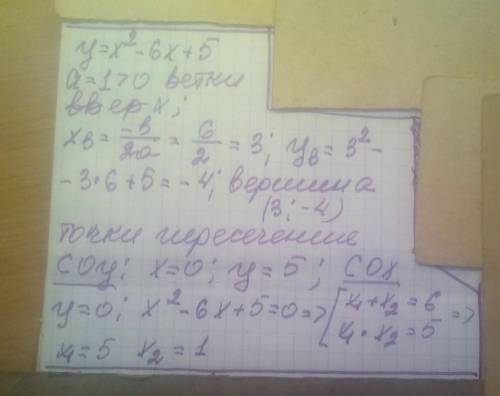 y=x²-6x+5
a=1>0 ветки
вверх;
xв = -в/2a = 6/2 = 3; yв = 3² -
-3·6+5=-4; вершина
(3;-4)
точки пересечение
С OY: x=0; y=5; С OX
y=0; x²-6x+5=0 => [x₁+x₂=6
x₁·x₂=5 =>
x₁=5 x₂=1